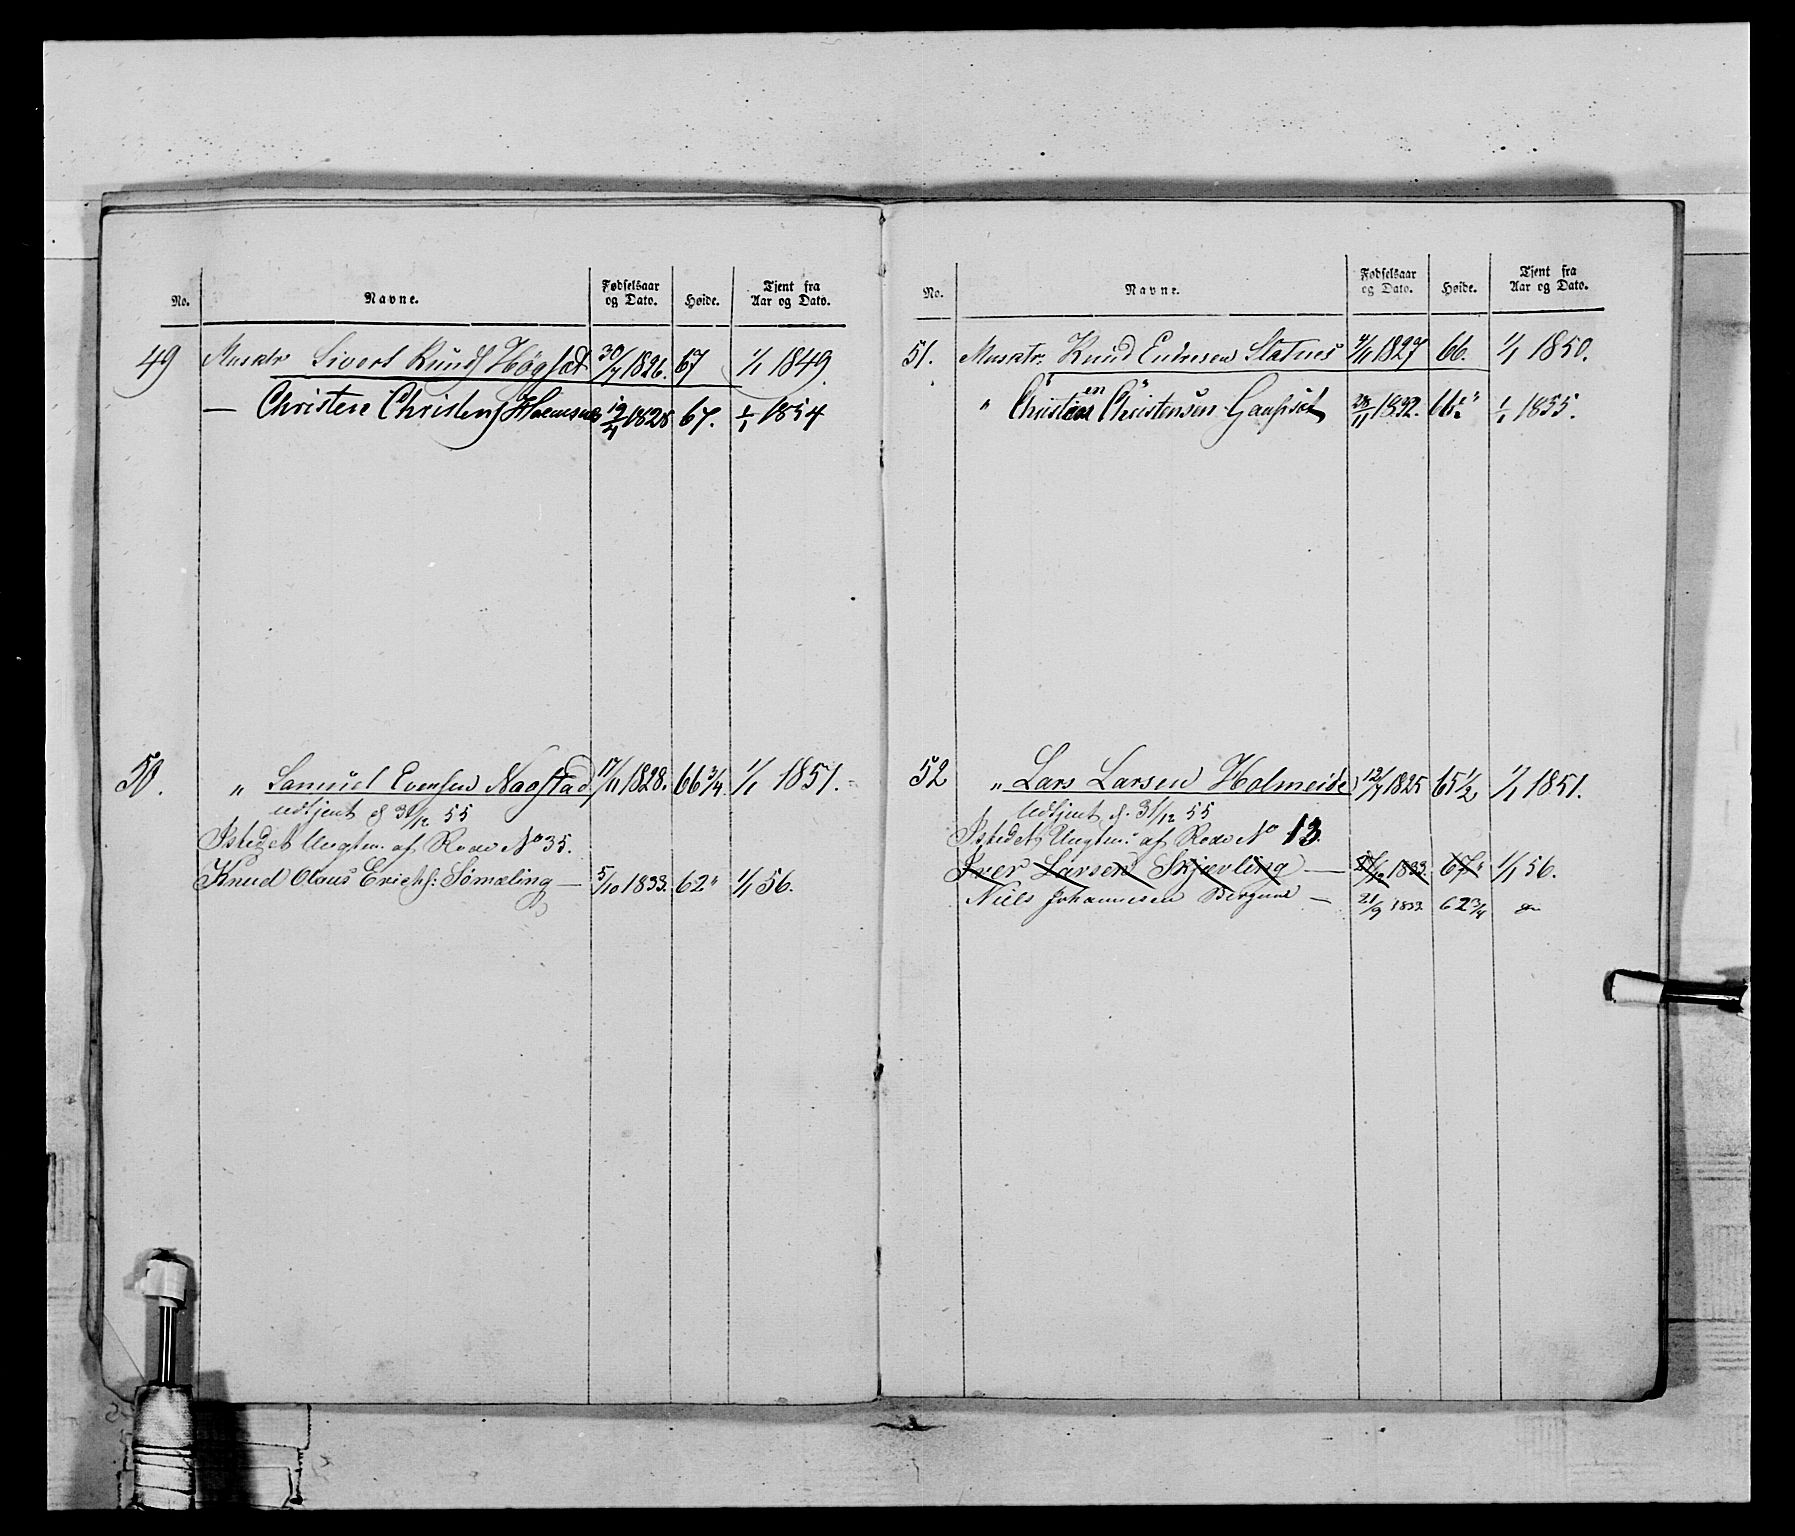 No. Navne. Fødselsaar og Dato. Høide. Tjent fra Aar og Dato.
49 Musktr Sivert Knuds Høgset 30/7 1826. 67 1/1 1849.
— Christen Christens 12/4 1828 67. 1/1 1854
50. " Samuel Evensen Naostad 17/11 1828. 66 3/4 1/1 1851.
udtjent d 31/12 55
Istedet Ungtm. af Rode No 35.
Knud Olaus Erichs: Sömæling — 5/10 1833. 62" 1/1 56.
No. Navne. Fødselsaar og Dato. Høide. Tjent fra Aar og Dato.
51. Musktr. Knud Endresen Statnes 1827 66. 1/1 1850.
" Christen Christensen Gaupset 28/11 1832. 1/1 1855.
52 " Lars Larsen Holmeide 12/7 1825 65 1/2 1/1 1851.
Udtjent d. 31/12 55
Istedet Ungtm. af Rode No 13.
Iver Larsen Skjævling — 1833. 67" 1/1 56.
Niels Johannesen — 21/9 1833. 62 3/4